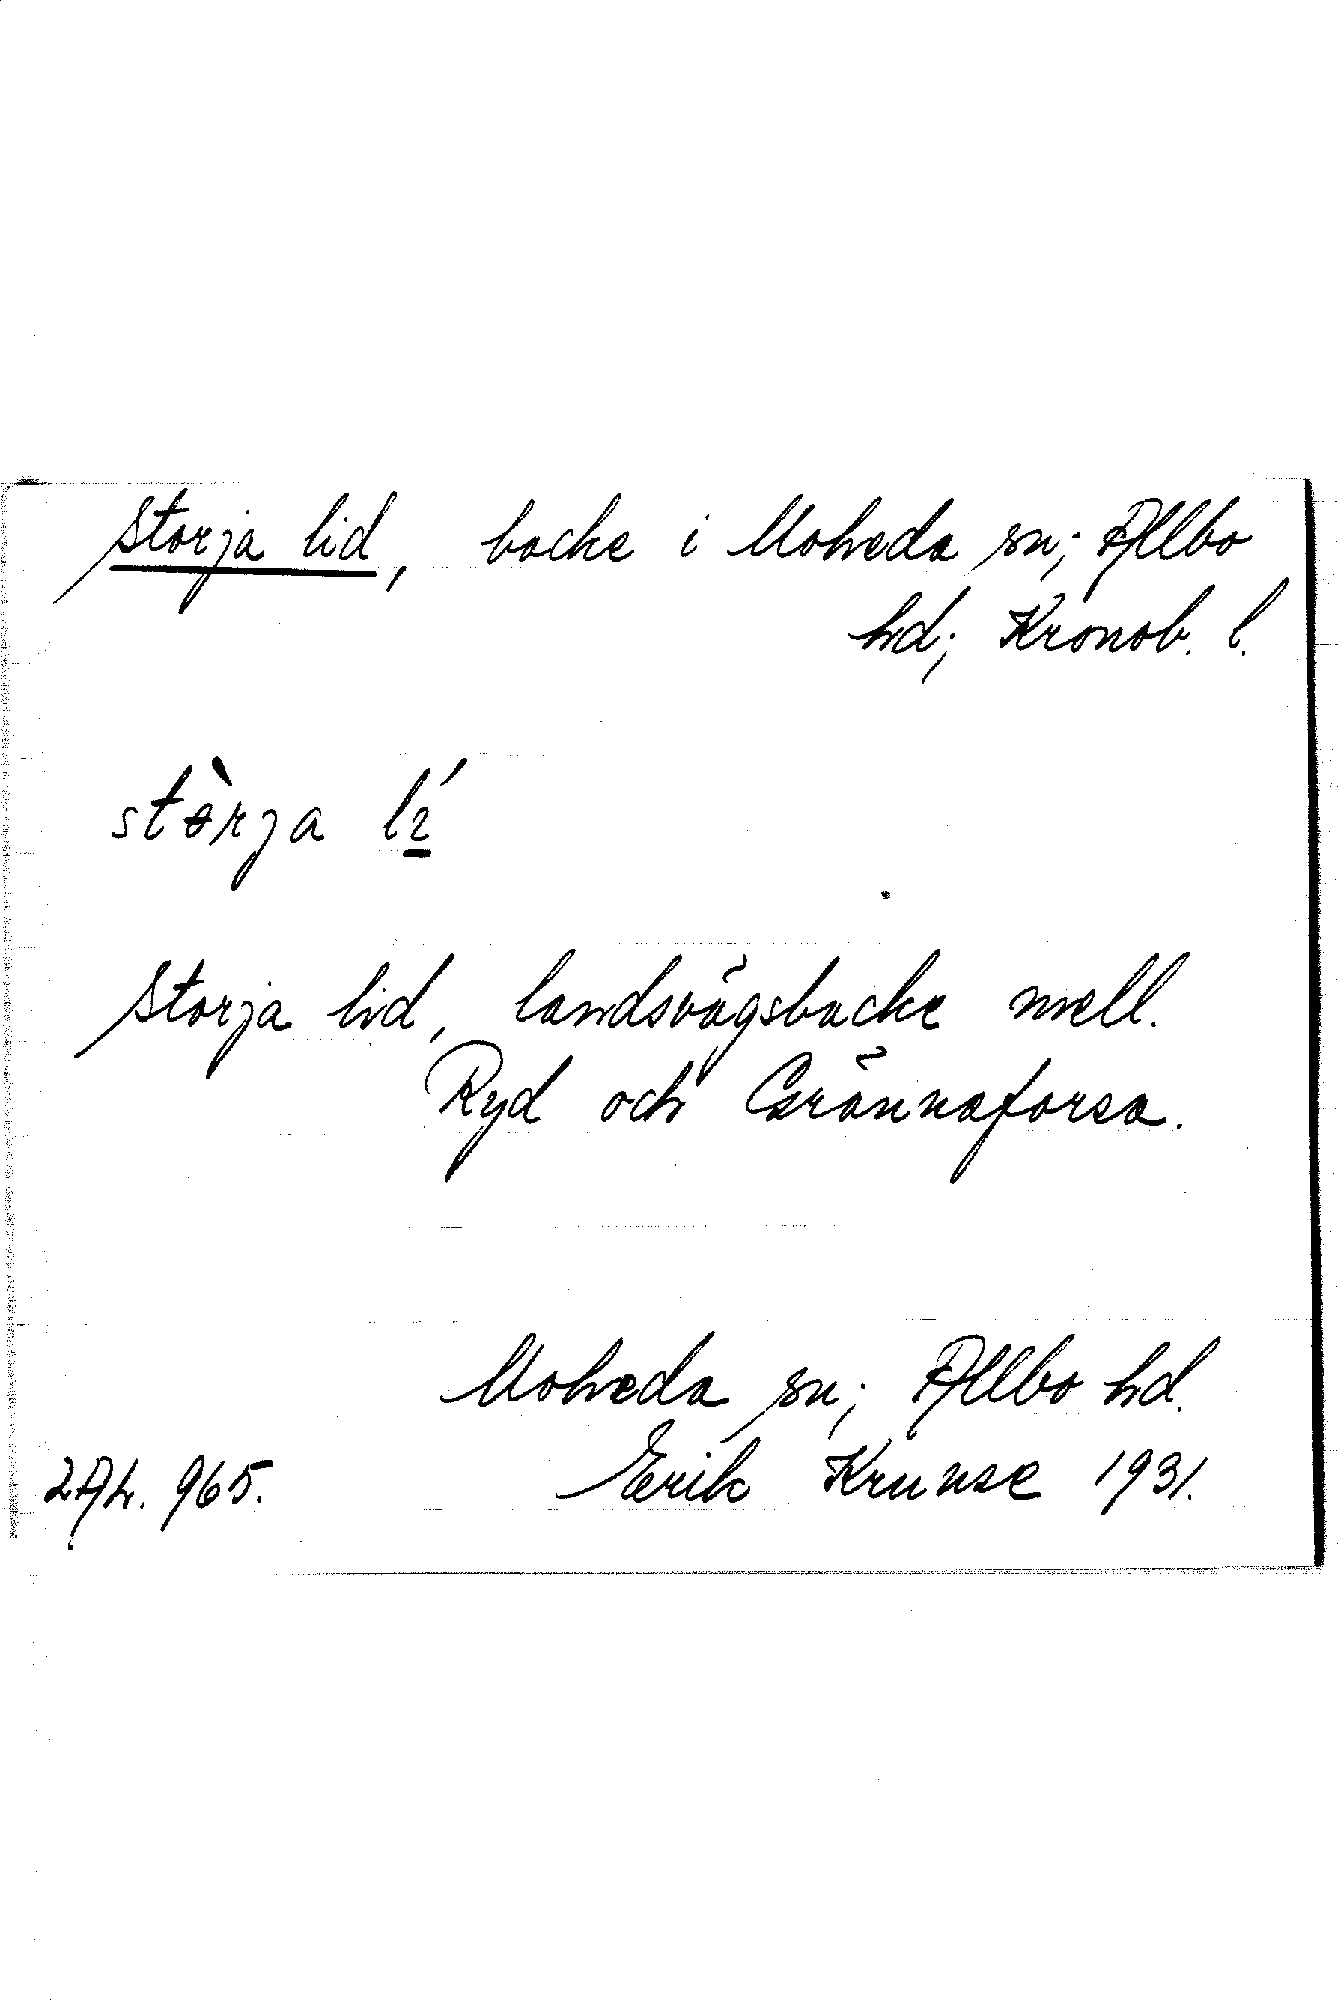 Storja lid, backe i Moheda sn; Allbo
hd; Kronob. l.
stòrja lí
Storja lid, landsvägsbacke mell.
Ryd och Grännaforsa.
Moheda sn; Allbo hd.
965. Erik Krunse 1931.